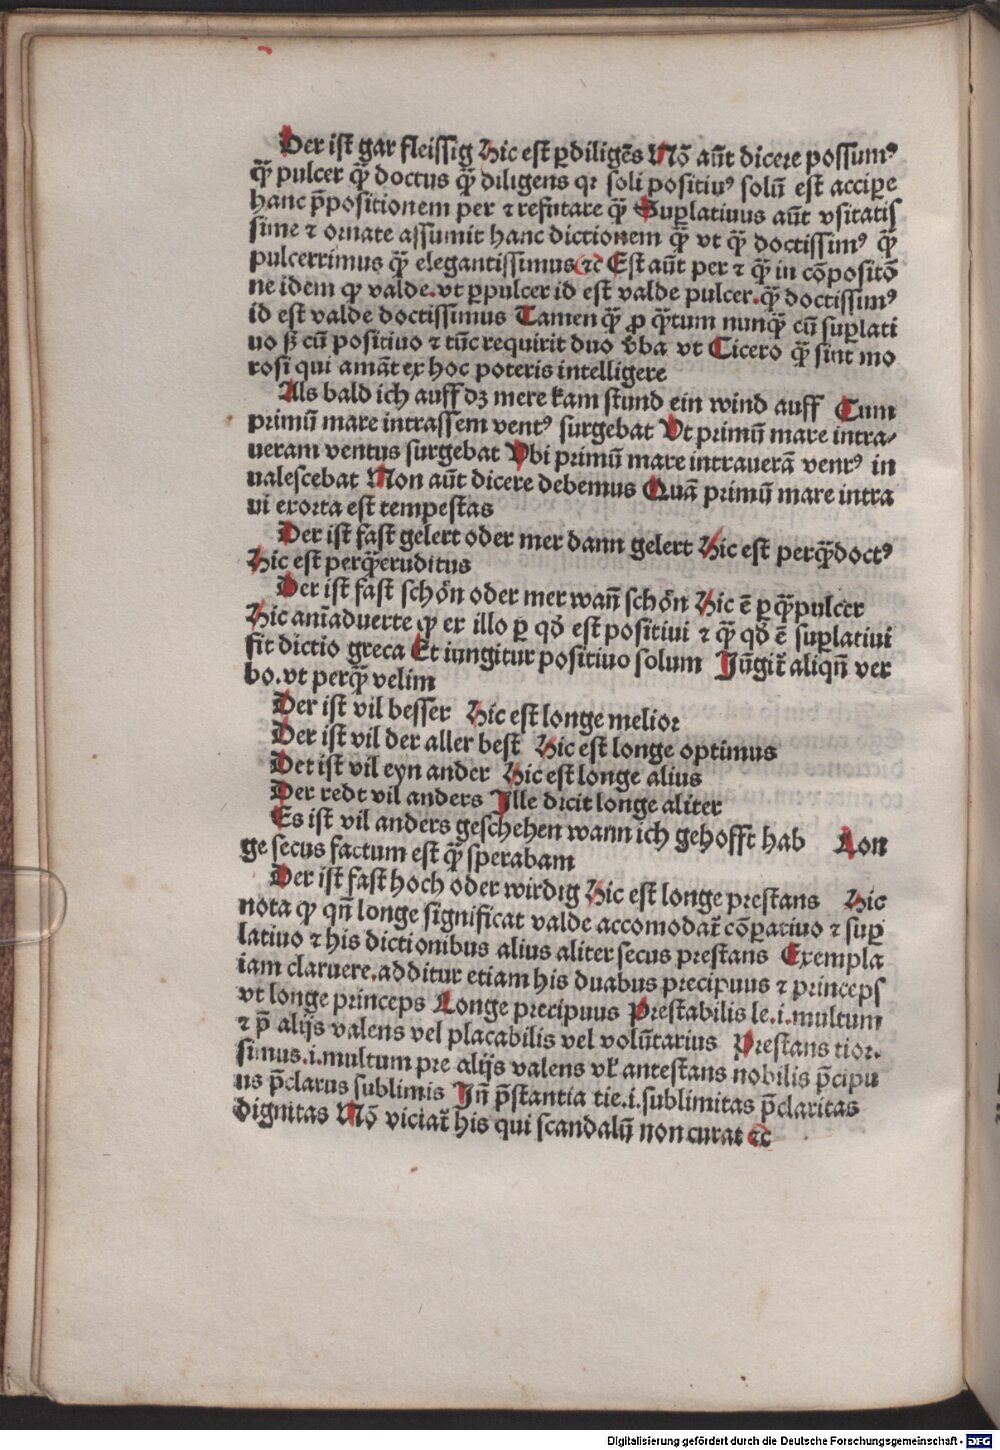 Der ist gar fleissig Hic est ꝑdiligēs Nō aūt dicere possumꝰ
q̄ꝫ pulcer q̄ꝫ doctus q̄ꝫ diligens qꝛ soli positiuꝰ solū est accipe
hanc p̄positionem per ⁊ refutare q̄ꝫ Suꝑlatiuus aūt vsitatis
sime ⁊ ornate assumit hanc dictionem q̄ꝫ vt q̄ꝫ doctissimꝰ q̄ꝫ
pulcerrimus q̄ꝫ elegantissimus ⁊c̄ Est aūt per ⁊ q̄ꝫ in cōpositō
ne idem ꝙ valde.vt ꝑpulcer id est valde pulcer.q̄ꝫ doctissimꝰ
id est valde doctissimus Tamen q̄ꝫ ꝓ q̄ꝫtum nunq̄ꝫ cū suꝑlati
uo sꝫ cū positiuo ⁊ tūc requirit duo v̄ba vt Cicero q̄ꝫ sint mo
rosi qui amāt ex hoc poteris intelligere
Als bald ich auff dz mere kam stund ein wind auff Cum
primū mare intrassem ventꝰ surgebat Vt primū mare intra⸗
ueram ventus surgebat Vbi primū mare intrauerā ventꝰ in
ualescebat Non aūt dicere debemus Quā primū mare intra
ui exorta est tempestas
Der ist fast gelert oder mer dann gelert Hic est perq̄ꝫdoctꝰ
Hic est perq̄ꝫeruditus
Der ist fast schön oder mer wañ schön Hic ē ꝑq̄ꝫpulcer
Hic aniāduerte ꝙ ex illo ꝑ qd̄ est positiui ⁊ q̄ꝫ qd̄ ē suꝑlatiui
fit dictio greca Et iungitur positiuo solum Jūgit̄ aliqn̄ ver
bo.vt perq̄ꝫ velim
Der ist vil besser Hic est longe melior
Der ist vil der aller best Hic est longe optimus
Det ist vil eyn ander Hic est longe alius
Der redt vil anders Jlle dicit longe aliter
Es ist vil anders geschehen wann ich gehofft hab Lon
ge secus factum est q̄ꝫ sperabam
Der ist fast hoch oder wirdig Hic est longe prestans Hic
nota ꝙ qn̄ longe significat valde accomodat̄ cōꝑatiuo ⁊ suꝑ
latiuo ⁊ his dictionibus alius aliter secus prestans Exempla
iam claruere.additur etiam his duabus precipuus ⁊ princeps
vt longe princeps Longe precipuus Prestabilis le.i.multum
⁊ p̄ alijs valens vel placabilis vel volūtarius Prestans tior.
simus.i.multum pre alijs valens vl̄ antestans nobilis p̄cipu
us p̄clarus sublimis Jn̄ p̄stantia tie.i.sublimitas p̄claritas
dignitas Nō viciat̄ his qui scandalū non curat ⁊c̄
Digitalisierung gefördert durch die Deutsche Forschungsgemeinschaft - DFG